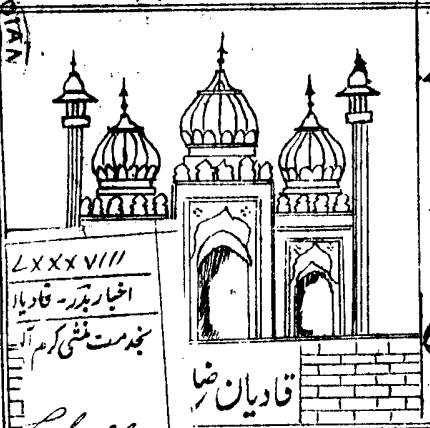 DIAN
LXXXVIII
اخبار بدر - قادیا
بخدمت منشی کرم
قادیان ضا